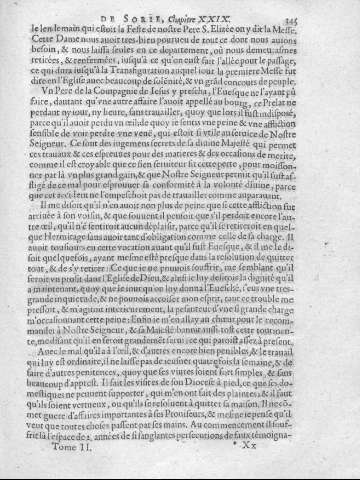 DE SORIE, Chapitre XXIX. 345
le lendemain qui estoit la Feste de nostre Pere S. Elizée on y dit la Messe.
Cette Dame nous auoit tres-bien pourueu de tout ce dont nous auions
besoin, & nous laissa seules en ce département, où nous demeurasmes
retirées, & enfermées, iusquà ce qu'on eust fait l'allée pour le passage,
ce qui dura iusqu'à la Transfiguration auquel iour la premiere Messe fut
dite en l'Eglise auec beaucoup de solénité, & vn grád concours de peuple.
Vn Pere de la Compagnie de Iesus y prescha, l'Euesque ne l'ayant pû
faire, dautant qu'vne autre affaire l'auoit appellé au bourg, ce Prelat ne
perdant ny iour, ny heure, sans trauailler, quoy que lors il fust indisposé,
parce qu'il auoit perdu vn œil de quoy ie sentis vne peine & vne affliction
sensible de voir perdre vne veuë, qui estoit si vtile au seruice de Nostre
Seigneur. Ce sont des iugemens secrets de sa diuine Majesté qui permet
ces trauaux & ces espreuues pour des matieres & des occasions de merite,
comme il est croyable que ce sien seruiteur fit cette perte, pour moissonner
par là vn plus grand gain, & que Nostre Seigneur permit qu'il fust affligé
de ce mal pour esprouuer sa conformité à la volonté diuine, parce
que cet accident ne l'empeschoit pas de trauailler comme auparauant.
Il me disoit qu'il n'en auoit non plus de peine que si cette affliction fut
arriuée à son voisin, & que souuent il pensoit que s'il perdoit encore l'autre
œil, qu'il n'é sentiroit aucun déplaisir, parce qu'il se retireroit en quelque
Hermitage sans auoir tant d'obligation comme celle de sa charge. Il
auoit tousiours eu cette vocation auant qu'il fust Euesque, & il me le disoit
quelquefois, ayant mesme esté presque dans la resolution de quitter
tout, & de s'y retirer: Ce que ie ne pouuois souffrir, me semblant qu'il
seroit vn profit dans l'Eglise de Dieu, & ainsi ie luy desirois la dignité qu'il
a maintenant, quoy que le iour qu'on luy donna l'Euesché, i'eus vne tres-
grande inquietude, & ne pouuois accoiser mon esprit, tant ce trouble me
pressoit, & m'agitoit interieurement, la pesanteur d'vne si grande charge
m'occasionnant cette peine: Enfin ie m'en allay au chœur pour le recommander
à Nostre Seigneur, & sa Majesté bannit aussi-tost cette tourmente,
me disant qu'il en seroit grandemét seruy: ce qui paroist assez à present.
Auec le mal qu'il a à l'œil, & d'autres encore bien penibles, & le trauail
qui luy est ordinaire, il ne laisse pas de ieusner quatre fois la semaine, & de
faire d'autres penitences, quoy que ses viures soient fort simples, & sans
beaucoup d'apprest. Il fait les visites de son Diocese à pied, ce que ses domestiques
ne peuuent supporter, qui m'en ont fait des plaintes, & il faut
qu'ils soient vertueux, ou qu'ils se resoluent à quitter sa maison. Il ne commet
guere d'affaires importantes à ses Prouiseurs, & mesme ie pense qu'il
veut que toutes choses passent par ses mains. Au commencement il souffrit
là l'espace de 2. années de si sanglantes persecutions de faux témoigna-
Tome II. * Xx